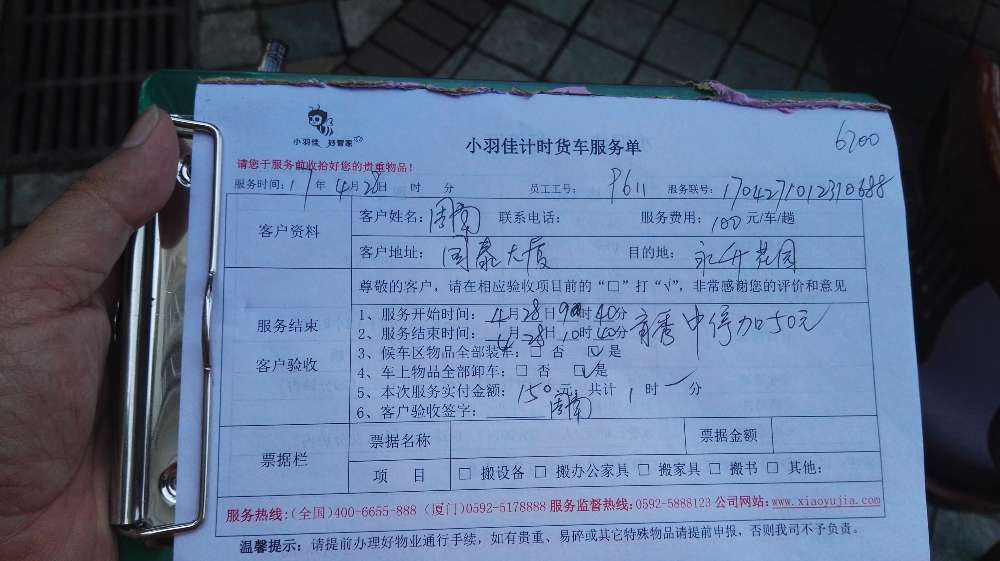 6200
小羽佳 好管家
小羽佳计时货车服务单
请您于服务前收拾好您的贵重物品!
服务时间:17年4月28日 时 分 员工工号: P611 服务联号:1704271012310688
客户资料
客户姓名:周南 联系电话: 服务费用:100元/车/趟
客户地址: 国泰大厦 目的地: 永升花园
尊敬的客户,请在相应验收项目前的“□”打“√”,非常感谢您的评价和意见
服务结束
客户验收
1、服务开始时间:4月28日9时40分
2、服务结束时间:4月28日10时40分
中停加50元
3、候车区物品全部装车:□ 否 ☑是
4、车上物品全部卸车:□ 否 ☑是
5、本次服务实付金额:150元,共计 1时一分
6、客户验收签字: 周南
票据栏
票据名称 票据金额
项 目 □ 搬设备 □ 搬办公家具 □ 搬家具 □ 搬书 □ 其他:
服务热线:(全国)400-6655-888 (厦门)0592-5178888 服务监督热线:0592-5888123 公司网站:www.xiaoyujia.com
温馨提示: 请提前办理好物业通行手续,如有贵重、易碎或其它特殊物品请提前申报,否则我司不予负责。